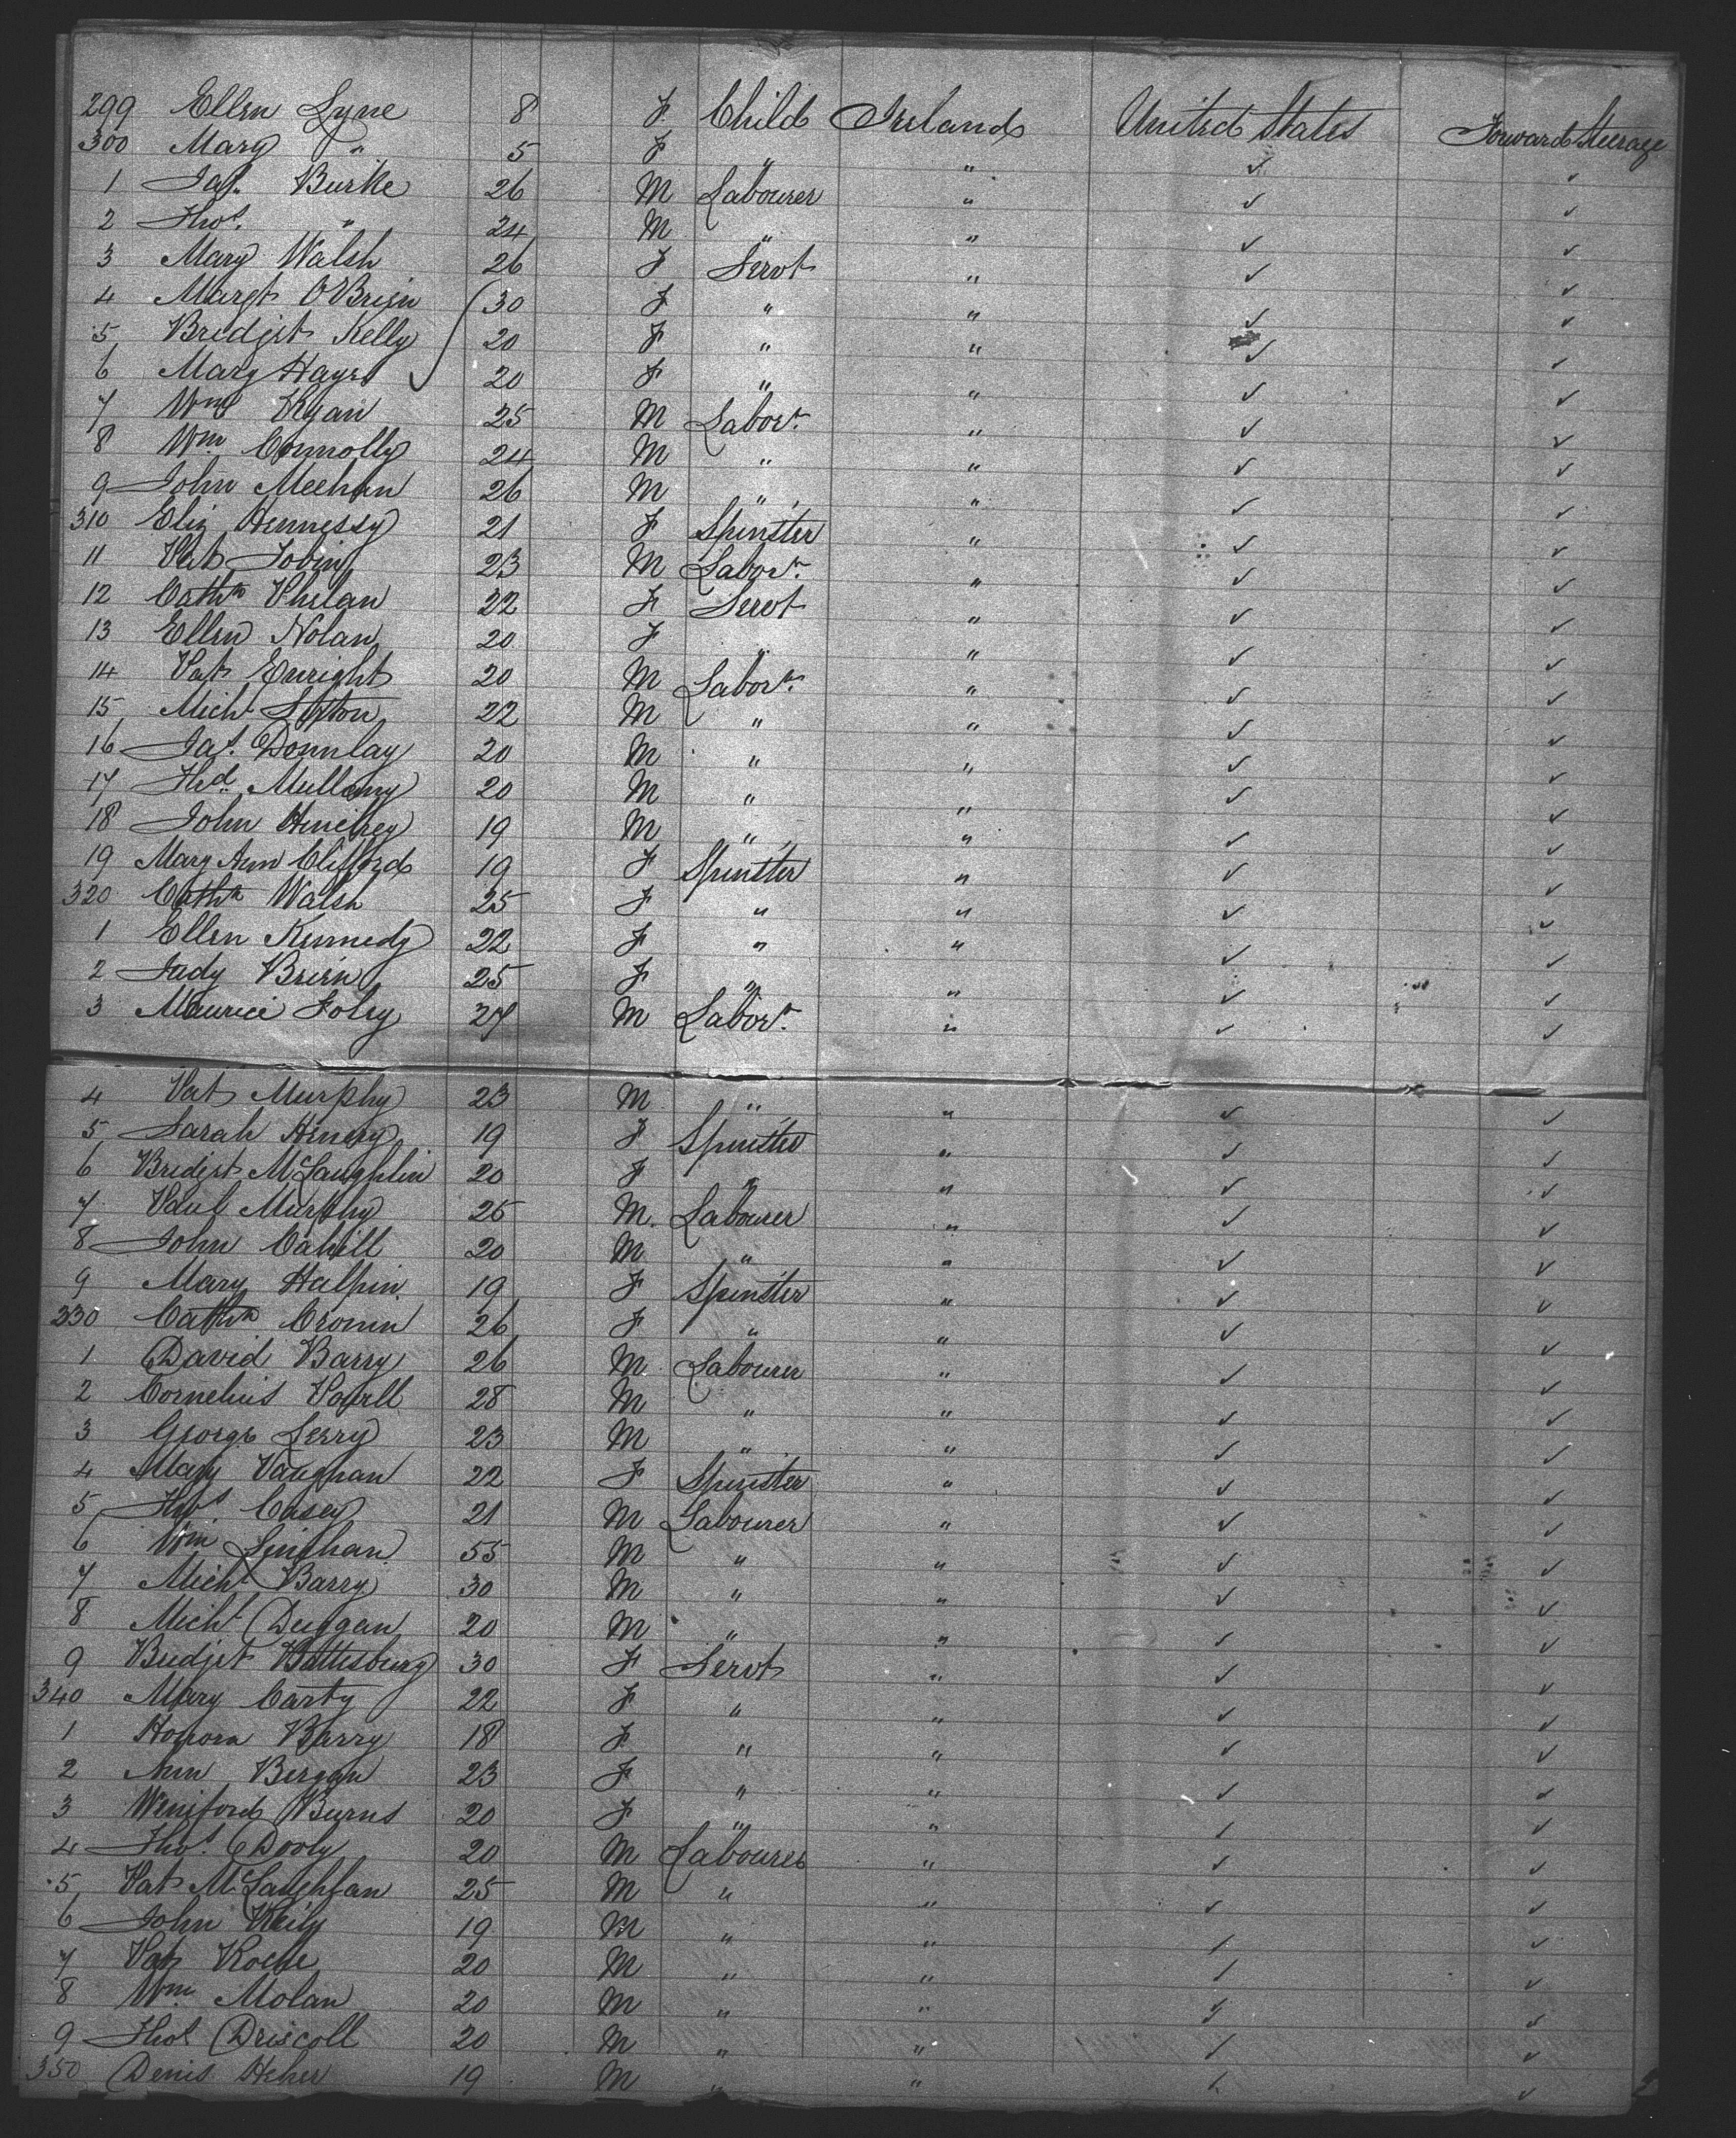 299 Ellen Lyne 8 F Child Ireland United States Forward Steerage
300 Mary " 5 F " " ✓ ✓
1 Jas. Burke 26 M Labourer " ✓ ✓
2 Thos. " 24 M " " ✓ ✓
3 Mary Walsh 26 F Servt " ✓ ✓
4 Margt O'Brien 30 F " " ✓ ✓
5 Bredget Kelly 20 F " " ✓ ✓
6 Mary Hayes 20 F " " ✓ ✓
7 Wm Ryan 25 M Labor. " ✓ ✓
8 Wm. Connolly 24 M " " ✓ ✓
9 John Meehan 26 M " " ✓ ✓
310 Eliz Hennessy 21 F Spinster " ✓ ✓
11 Pat Tobin 23 M Labor. " ✓ ✓
12 Cathn Phelan 22 F Servt " ✓ ✓
13 Ellen Nolan 20 F " " ✓ ✓
14 Pat Enright 20 M Labor. " ✓ ✓
15 Michl Sexton 22 M " " ✓ ✓
16 Jas. Donnlay 20 M " " ✓ ✓
17 Thd. Mullany 20 M " " ✓ ✓
18 John 19 M " " ✓ ✓
19 Mary Ann Clifford 19 F Spinster " ✓ ✓
320 Cathn Walsh 25 F " " ✓ ✓
1 Ellen Kennedy 22 F " " ✓ ✓
2 Judy Brien 25 F " " ✓ ✓
3 Maurice Foley 27 M Labor. " ✓ ✓
4 Pat Murphy 23 M " " ✓ ✓
5 Sarah Henery 19 F Spinster " ✓ ✓
6 Bredget McLaughlin 20 F " " ✓ ✓
7 Paul Murphy 25 M. Labourer " ✓ ✓
8 John Cahill 20 M " " ✓ ✓
9 Mary Halpin 19 F Spinster " ✓ ✓
330 Cathn Cronin 26 F " " ✓ ✓
1 David Barry 26 M Labourer " ✓ ✓
2 Cornelius Powell 28 M " " ✓ ✓
3 George Lerry 23 M " " ✓ ✓
4 Mary Vaughan 22 F Spinster " ✓ ✓
5 Thos Casey 21 M Labourer " ✓ ✓
6 Wm Linehan 55 M " " ✓ ✓
7 Michl Barry 30 M " " ✓ ✓
8 Michl Duggan 20 M " " ✓ ✓
9 Bredget Battesbury 30 F Servt " ✓ ✓
340 Mary Carty 22 F " " ✓ ✓
1 Honora Barry 18 F " " ✓ ✓
2 Ann Bergan 23 F " " ✓ ✓
3 Weniford Burns 20 F " " ✓ ✓
4 Thos. Dooly 20 M Labourer " ✓ ✓
5 Pat McLaughlan 25 M " " ✓ ✓
6 John Reily 19 M " " ✓ ✓
7 Pat Roche 20 M " " ✓ ✓
8 Wm. Molan 20 M " " ✓ ✓
9 Thos Driscoll 20 M " " ✓ ✓
350 Denis Heher 19 M " " ✓ ✓